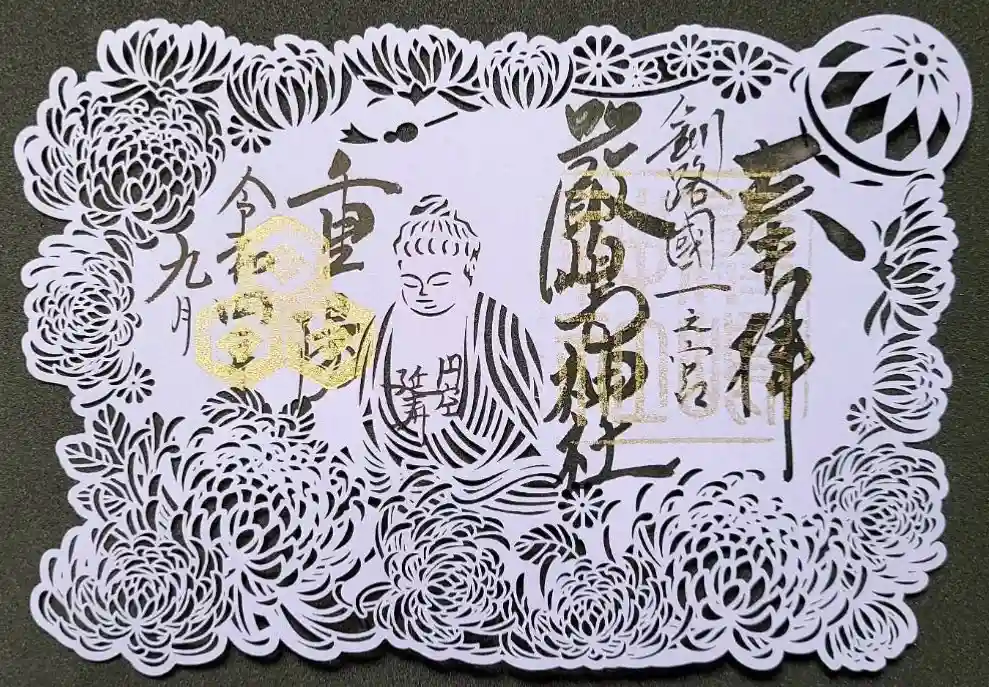 奉拝
釧路國一之宮
嚴島神社
円空
延寿
重陽
令和四年
九月